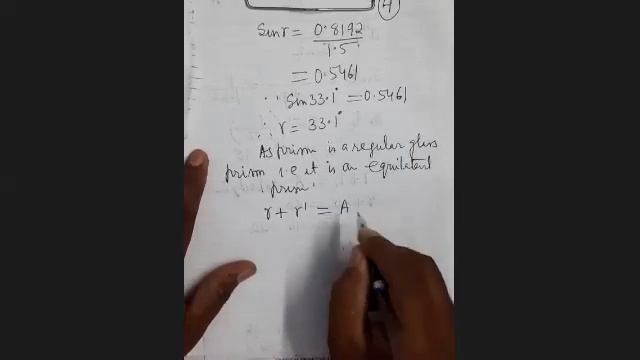 4
Sin r = 0.8192 / 1.5
= 0.5461
∵ Sin 33.1° = 0.5461
∴ r = 33.1°
As prism is a regular glass
prism i.e it is an equilateral
prism.
r + r' = A